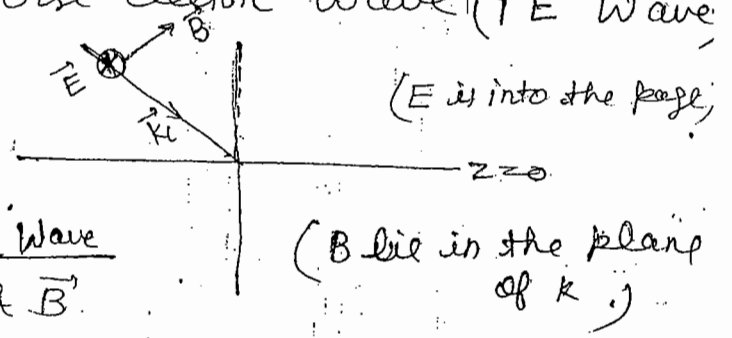 wave (TE Wave
B⃗
E⃗
(E is into the page,
K⃗
Z=0
Wave
(B lie in the plane
of k.)
B⃗.